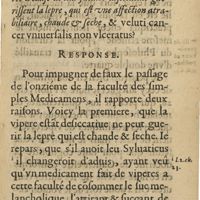 rissent la lepre, qui est vne affection atra-
bilaire, chaude & seche, & veluti can-
cer vniuersalis non vlceratus?
RESPONSE.
Pour impugner de faux le passage
de l'onziéme de la faculté des sim-
ples Medicamens, il rapporte deux
raisons. Voicy la premiere, que la
vipere est desiccatiue ne peut gue-
rir la lepre qui est chaude & seche. Ie
repars, que s'il auoit leu Syluaticus
il changeroit d'aduis, ayant veu
qu'vn medicament fait de viperes a
cette faculté de consommer le suc me-
lancholique l'attirant & sucçant de